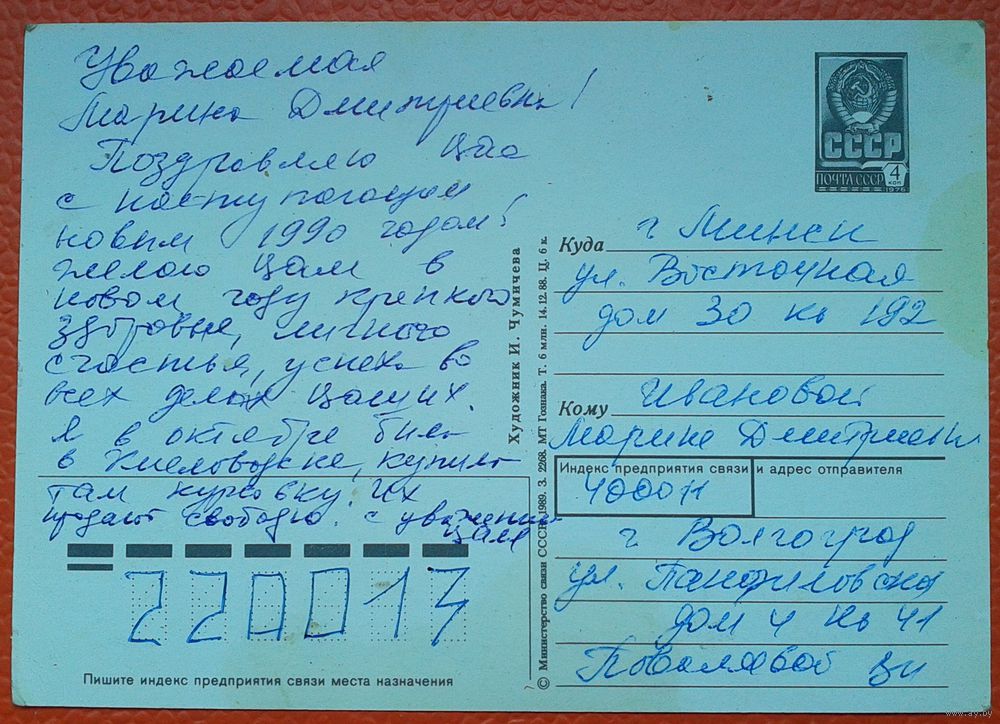 Уважаемая
Марина Дмитриевна!
Поздравляю Вас
с наступающим
новым 1990 годом!
желаю Вам в
новом году крепкого
здоровья, личного
счастья, успеха во
всех делах Ваших.
Я в октябре была
в Кисловодске, купила
там курсовку. их
продают свободно. с уважением
220013
Пишите индекс предприятия связи места назначения
Художник И. Чумичева
© Министерство связи СССР, 1989. З. 2268. МТ Гознака. Т. 6 млн. 14.12.88. Ц. 6 к.
СССР
ПОЧТА СССР 4 коп
1976
Куда г Минск
ул. Восточная
дом 30 кв 192
Кому Ивановой
Марине Дмитриевне
Индекс предприятия связи и адрес отправителя
400011
г. Волгоград
ул. Панфиловская
дом 4 кв 41
www.ay.by